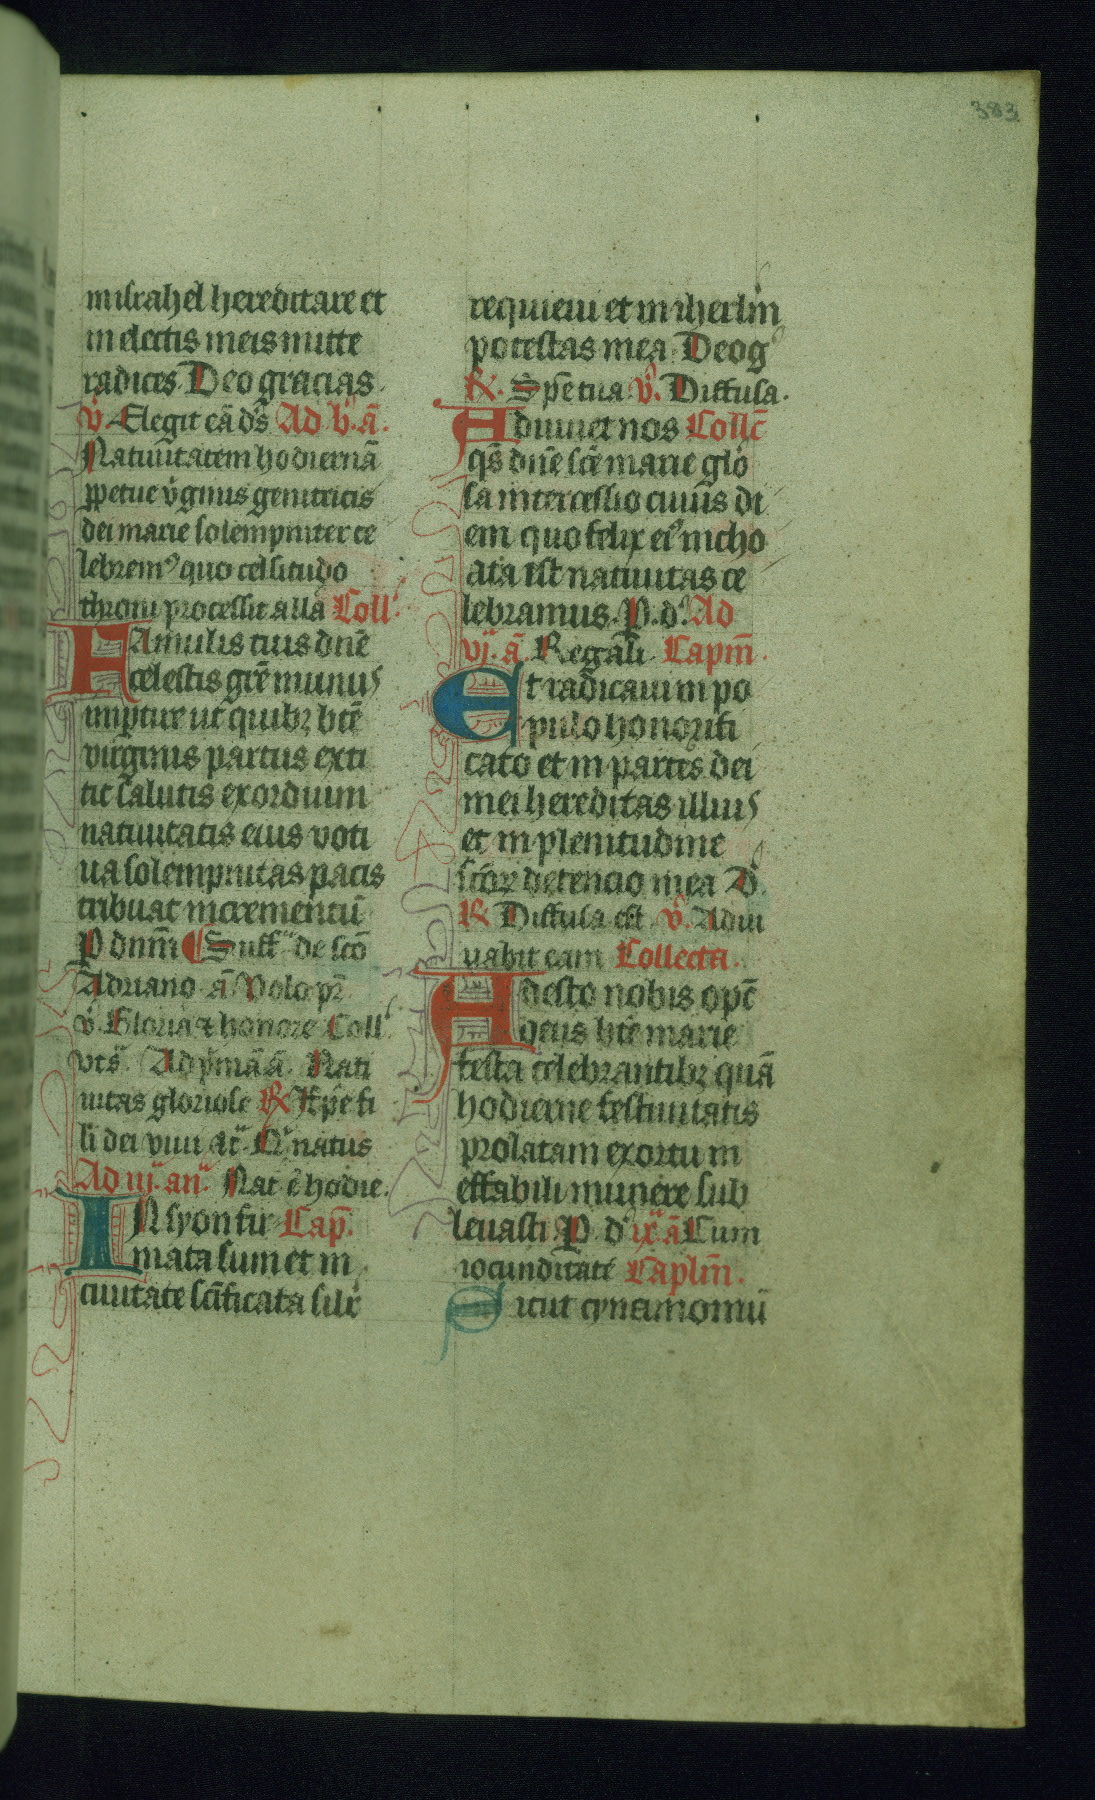 383
in israhel hereditare et
in electis meis mitte
radices Deo gracias
v̾ Elegit eā dn̄s Ad b̾ ā.
Natiuitatem hodiernā
ꝑpetue v̾ginis genitricis
dei marie solempniter ce
lebrem⁹ quo celsitudo
throni processit alla Coll̾
FAmulis tuis dn̄e
celestis gr̄e munus
impture ut quibꝫ bt̄e
virginis partus exti
tit salutis exordium
natiuitatis eius voti
ua solempnitas pacis
tribuat incrementū
P dnm̄ Suff de scō
Adriano ā Polo pr̄
v̾ Gloria & honore Coll̾
vts̄ Ad p̾mā ā Nati
uitas gloriose R̸ Ihū xp̄e fi
li dei viui at̄ Q̾ natus
Ad iij. an̄ Nat ē hodie.
IN syon fir Cap̄.
mata sum et in
ciuitate sc̄ificata sil̾r
requieui et in iherlm̄
potestas mea Deo g̾
R̸. Spe tua v̾. Diffusa.
Adiuuet nos Collc̄
qs̄ dn̄e sc̄e marie glō
sa intercessio cuius di
em quo felix ei⁹ incho
ata est natiuitas ce
lebramus. P. d̾ Ad
vj. ā. Regāli Capm̄.
Et radicaui in po
pulo honorifi
cato et in partes dei
mei hereditas illius
et in plenitudine
scōꝝ detencio mea D̾.
R̸ Diffusa est v̾. Adiu
uabit eam Collecta.
Adesto nobis opc̄
deus bt̄e marie
festa celebrantibꝫ quā
hodierne festiuitatis
prolatam exortu in
effabili munere sub
leuasti P d̾ ix ā Cum
iocunditate Caplm̄.
Sicut cynamomū